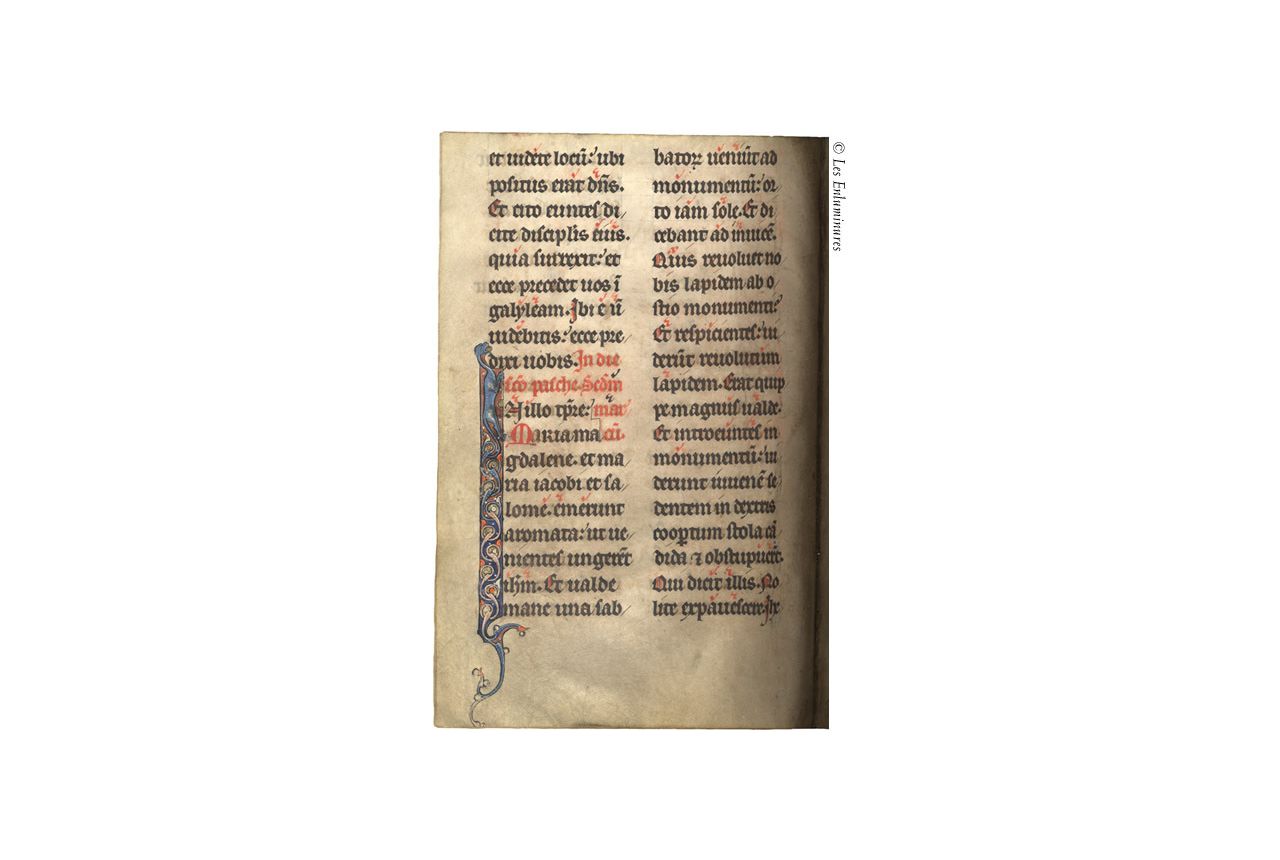 et uidete locū: ubi
positus erat dn̄s.
Et cito euntes di
cite discipl'is eius.
quia surrexit: et
ecce precedet uos ī
galyleam. Ibi eū
uidebitis: ecce pre
dixi uobis. In die
sc̄o pasche. Scdm̄
N illo tp̄re: mar
Maria ma cū.
gdalene. et ma
ria iacobi et sa
lome. emerunt
aromata: ut ue
nientes ungerēt
ihm̄. Et ualde
mane una sab
batoꝝ ueniūt ad
monumentū: or
to iam sole. Et di
cebant ad inuicē.
Quis reuoluet no
bis lapidem ab o
stio monumenti?
Et respicientes: ui
derūt reuolutum
lapidem. Erat quip
pe magnus ualde.
Et introeuntes in
monumentū: ui
derunt iuuenē se
dentem in dextris
coopertum stola cā
dida ⁊ obstupuerūt.
Qui dicit illis. No
lite expauescere. Ih̄
© Les Enluminures